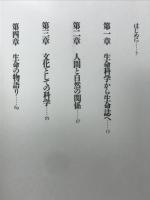 はじめに……7
第一章　生命科学から生命誌へ……13
第二章　人間と自然の関係……
第三章　文化としての科学……
第四章　生命の物語り……